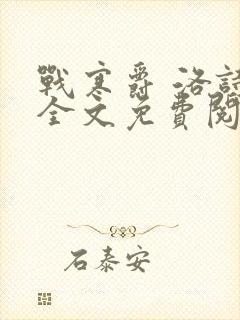 戰寒爵 洛詩
全文免費閱
石泰安